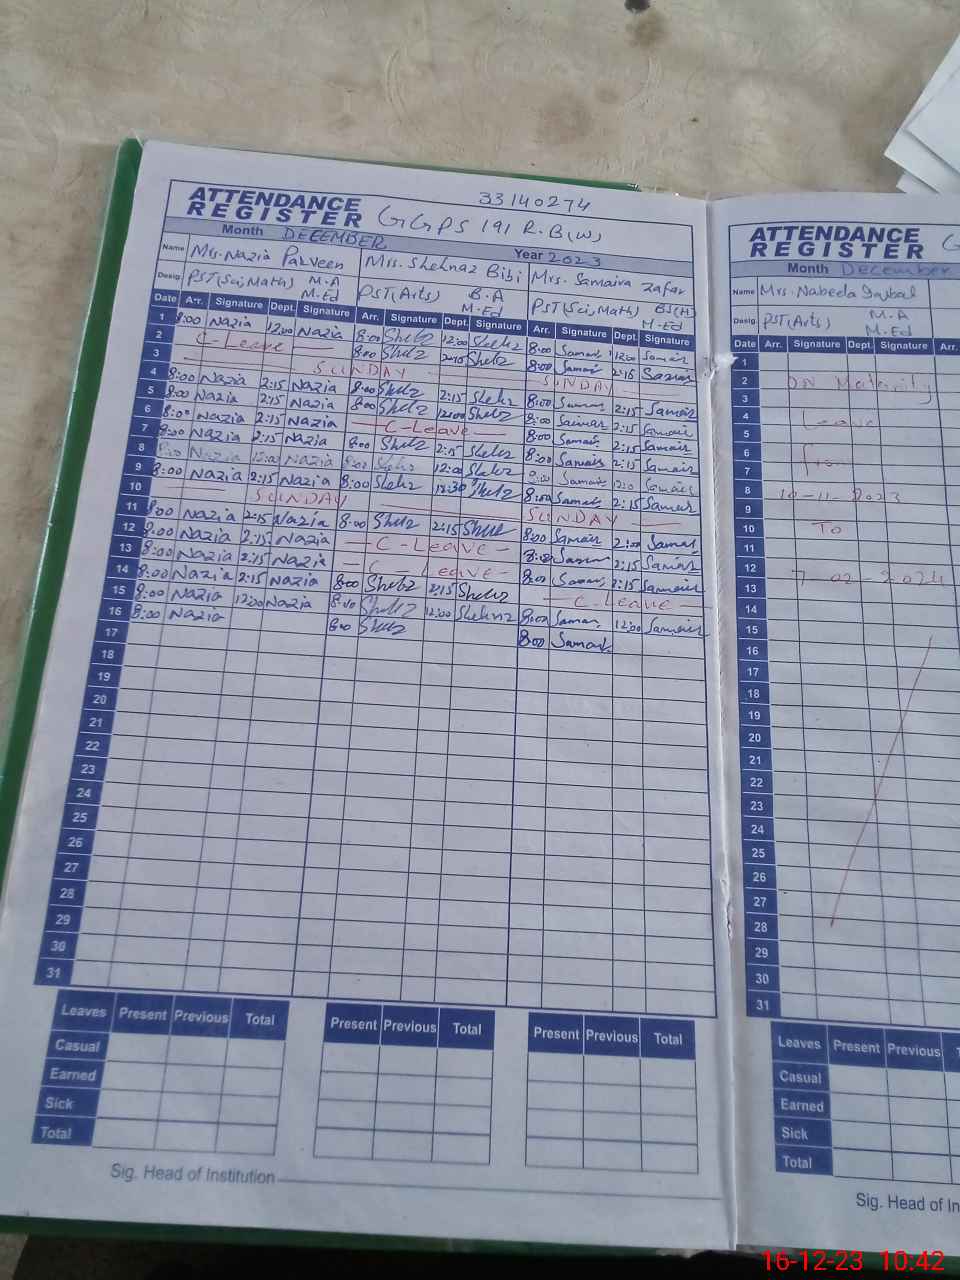 33140274
ATTENDANCE REGISTER GGPS 191 R.B(W)
Month DECEMBER Year 2023
Name Mrs. Nazia Parveen Mrs. Shehnaz Bibi Mrs. Samaira Zafar
Desig. PST(Sci,Math) M.A M.Ed PST(Arts) B.A M.Ed PST(Sci,Math) BS(H) M.Ed
Date Arr. Signature Dept. Signature Arr. Signature Dept. Signature Arr. Signature Dept. Signature
1 8:00 Nazia 12:00 Nazia 8:00 Shehz 12:00 Shehz 8:00 Samair 12:00 Samair
2 C-Leave 8:00 Shehz 2:15 Shehz 8:00 Samair 2:15 Samair
3 SUNDAY SUNDAY
4 8:00 Nazia 2:15 Nazia 8:00 Shehz 2:15 Shehz 8:00 Samair 2:15 Samair
5 8:00 Nazia 2:15 Nazia 8:00 Shehz 12:00 Shehz 8:00 Samair 2:15 Samair
6 8:00 Nazia 2:15 Nazia C-Leave 8:00 Samair 2:15 Samair
7 8:00 Nazia 2:15 Nazia 8:00 Shehz 2:15 Shehz 8:00 Samair 2:15 Samair
8 8:00 Nazia 12:00 Nazia 8:00 Shehz 12:00 Shehz 8:00 Samair Samair
9 8:00 Nazia 2:15 Nazia 8:00 Shehz 12:30 Shehz 8:00 Samair 2:15 Samair
10 SUNDAY SUNDAY
11 8:00 Nazia 2:15 Nazia 8:00 Shehz 2:15 Shehz 8:00 Samair 2:00 Samair
12 8:00 Nazia 2:15 Nazia C-Leave 8:00 Samair 2:15 Samair
13 8:00 Nazia 2:15 Nazia C-Leave 8:00 Samair 2:15 Samair
14 8:00 Nazia 2:15 Nazia 8:00 Shehz 2:15 Shehz C-Leave
15 8:00 Nazia 12:00 Nazia 8:00 Shehz 12:00 Shehnz 8:00 Samair 12:00 Samair
16 8:00 Nazia 8:00 Shehz 8:00 Samair
17
18
19
20
21
22
23
24
25
26
27
28
29
30
31
Leaves Present Previous Total Present Previous Total Present Previous Total
Casual
Earned
Sick
Total
Sig. Head of Institution
ATTENDANCE REGISTER G
Month December
Name Mrs. Nabeela Iqbal
Desig. PST(Arts) M.A M.Ed
Date Arr. Signature Dept. Signature Arr.
1
2 On Maternity
3
4 Leave
5
6 from
7
8 10-11-2023
9
10 To
11
12 7-02-2024
13
14
15
16
17
18
19
20
21
22
23
24
25
26
27
28
29
30
31
Leaves Present Previous
Casual
Earned
Sick
Total
Sig. Head of In
16-12-23 10:42